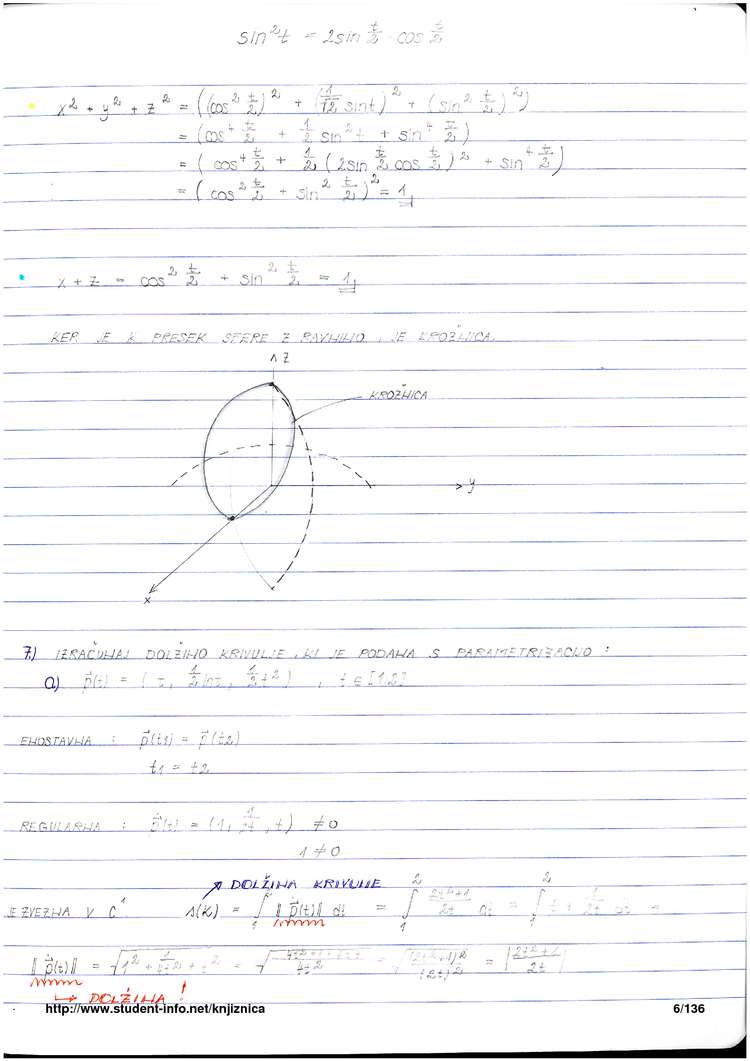 sin²t = 2sin t/2 · cos t/2
x² + y² + z² = ((cos² t/2)² + (1/√2 sint)² + (sin² t/2)²)
= (cos⁴ t/2 + 1/2 sin²t + sin⁴ t/2)
= (cos⁴ t/2 + 1/2 (2sin t/2 cos t/2)² + sin⁴ t/2)
= (cos² t/2 + sin² t/2)² = 1
x + z = cos² t/2 + sin² t/2 = 1
KER JE K PRESEK SFERE Z RAVNINO, JE KROŽNICA.
z
KROŽNICA
y
x
7.) IZRAČUNAJ DOLŽINO KRIVULJE, KI JE PODANA S PARAMETRIZACIJO :
a) p⃗(t) = (t, 1/2 lnt, 1/2 t²) , t ∈ [1,2]
ENOSTAVNA : p⃗(t1) = p⃗(t2)
t1 = t2
REGULARNA : ṗ⃗(t) = (1, 1/2t, t) ≠ 0
1 ≠ 0
DOLŽINA KRIVULJE
JE ZVEZNA V C¹. s(K) = ∫₁² ‖ṗ⃗(t)‖ dt = ∫₁² (2t²+1)/2t dt = ∫₁² t + 1/2t dt =
‖ṗ⃗(t)‖ = √(1² + 1/4t² + t²) = √( /4t²) = √((2t²+1)²/(2t)²) = |(2t²+1)/2t|
↳ DOLŽINA !
http://www.student-info.net/knjiznica
6/136